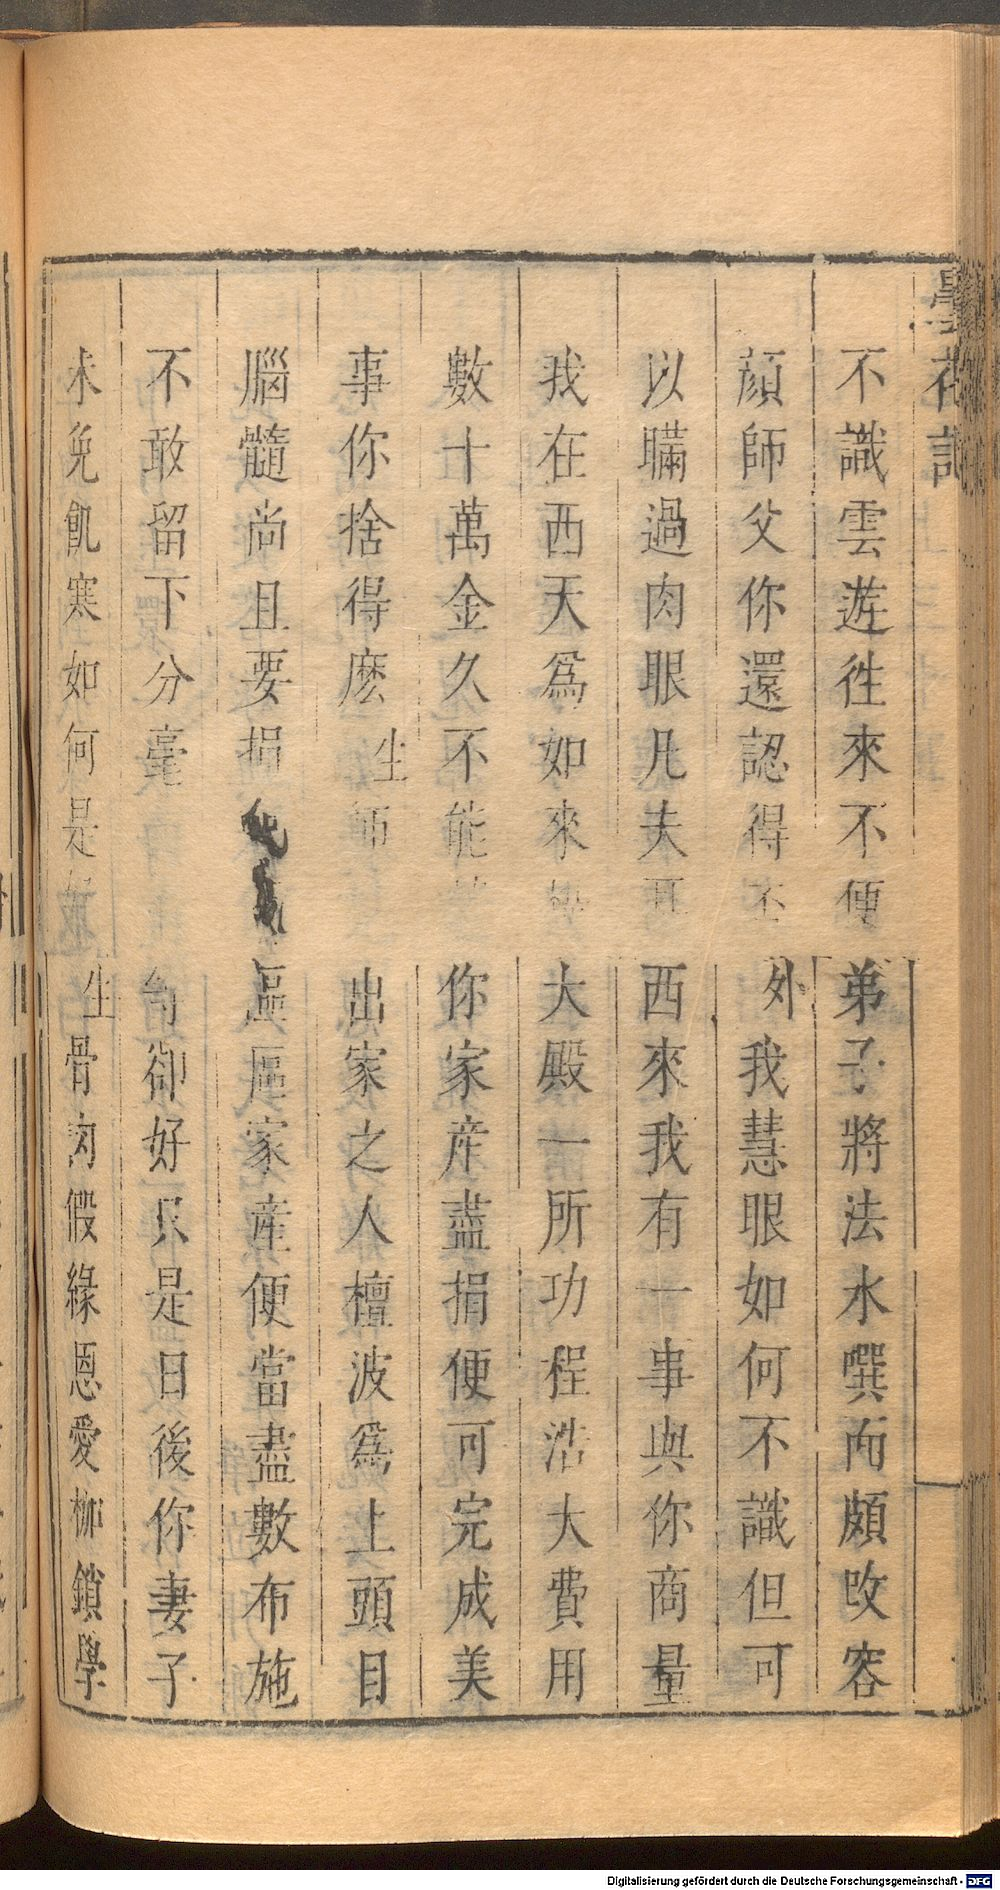 曇花記
不識雲遊徃來不便弟子將法水噀面頗改容
顔師父你還認得不外我慧眼如何不識但可
以瞞過肉眼凡夫耳西來我有一事與你商量
我在西天爲如來大殿一所功程浩大費用
數十萬金久不能你家産盡捐便可完成美
事你捨得麽生師出家之人檀波爲上頭目
腦髓尚且要捐區區家産便當盡數布施
不敢留下分毫卻好只是日後你妻子
未免飢寒如何是生骨肉假緣恩愛枷鎖學
Digitalisierung gefördert durch die Deutsche Forschungsgemeinschaft - DFG